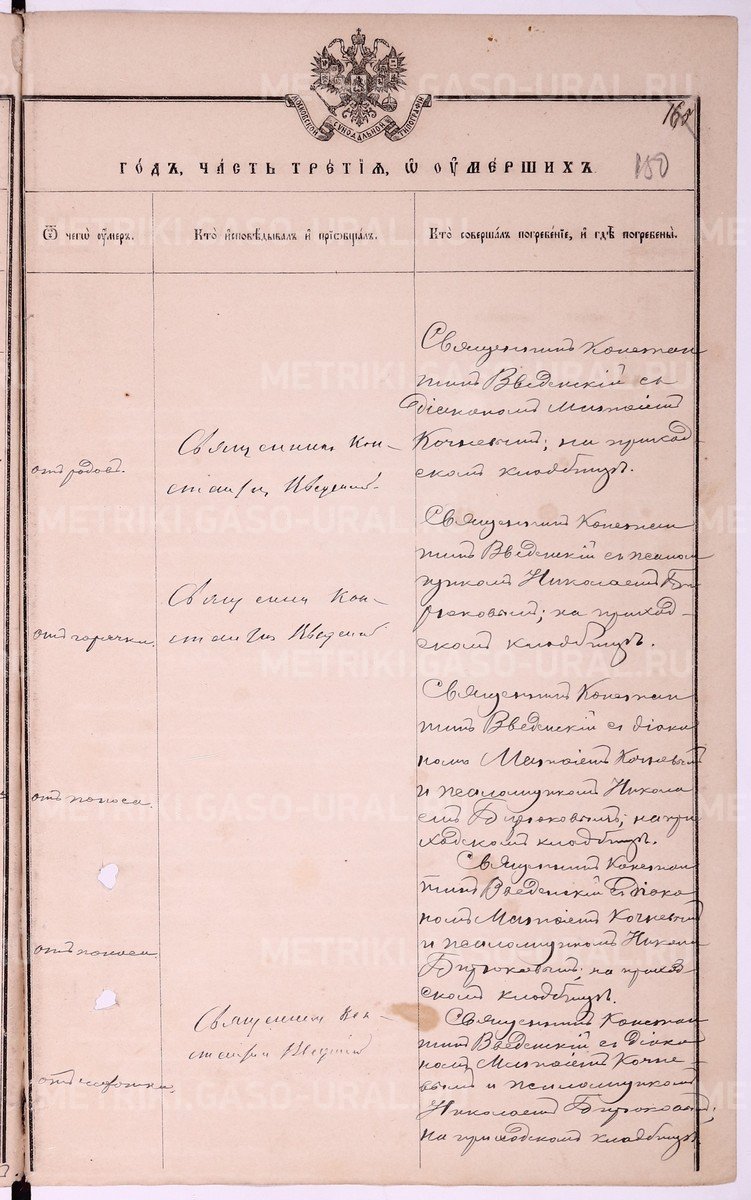 МОСКОВСКОЙ СѴНОДАЛЬНОЙ ТИПОГРАФІИ
168
180
ГОДЪ, ЧАСТЬ ТРЕТІЯ, Ѡ ОУМЕРШИХЪ.
Ѿ чегѡ оумеръ.
Кто исповѣдывалъ и пріѡбщалъ.
Кто совершалъ погребеніе, и гдѣ погребены.
отъ родовъ.
Священникъ Кон-
стантин Введенскій.
Священникъ Констан
тинъ Введенскій съ
Діакономъ Матѳіемъ
Кочневымъ; на приход-
скомъ кладбищѣ.
отъ горячки.
Священник Кон-
стантин Введенскій
Священникъ Констан
тинъ Введенскій съ псалом
щикомъ Николаемъ Би
рюковымъ; на приход-
скомъ кладбищѣ.
отъ поноса.
Священникъ Констан
тинъ Введенскій съ діако
номъ Матѳіемъ Кочневымъ
и псаломщикомъ Никола
емъ Бирюковымъ; на при
ходскомъ кладбищѣ.
отъ поноса.
Священникъ Констан
тинъ Введенскій съ Діако
номъ Матѳіемъ Кочневымъ
и псаломщикомъ Никол
Бирюковымъ; на приход
скомъ кладбищѣ.
отъ
Священник Кон-
стантин Введенскій
Священникъ Констан
тинъ Введенскій съ діако
номъ Матѳіемъ Кочне-
вымъ и псаломщикомъ
Николаемъ Бирюковымъ;
на приходскомъ кладбищѣ.
METRIKI.GASO-URAL.RU